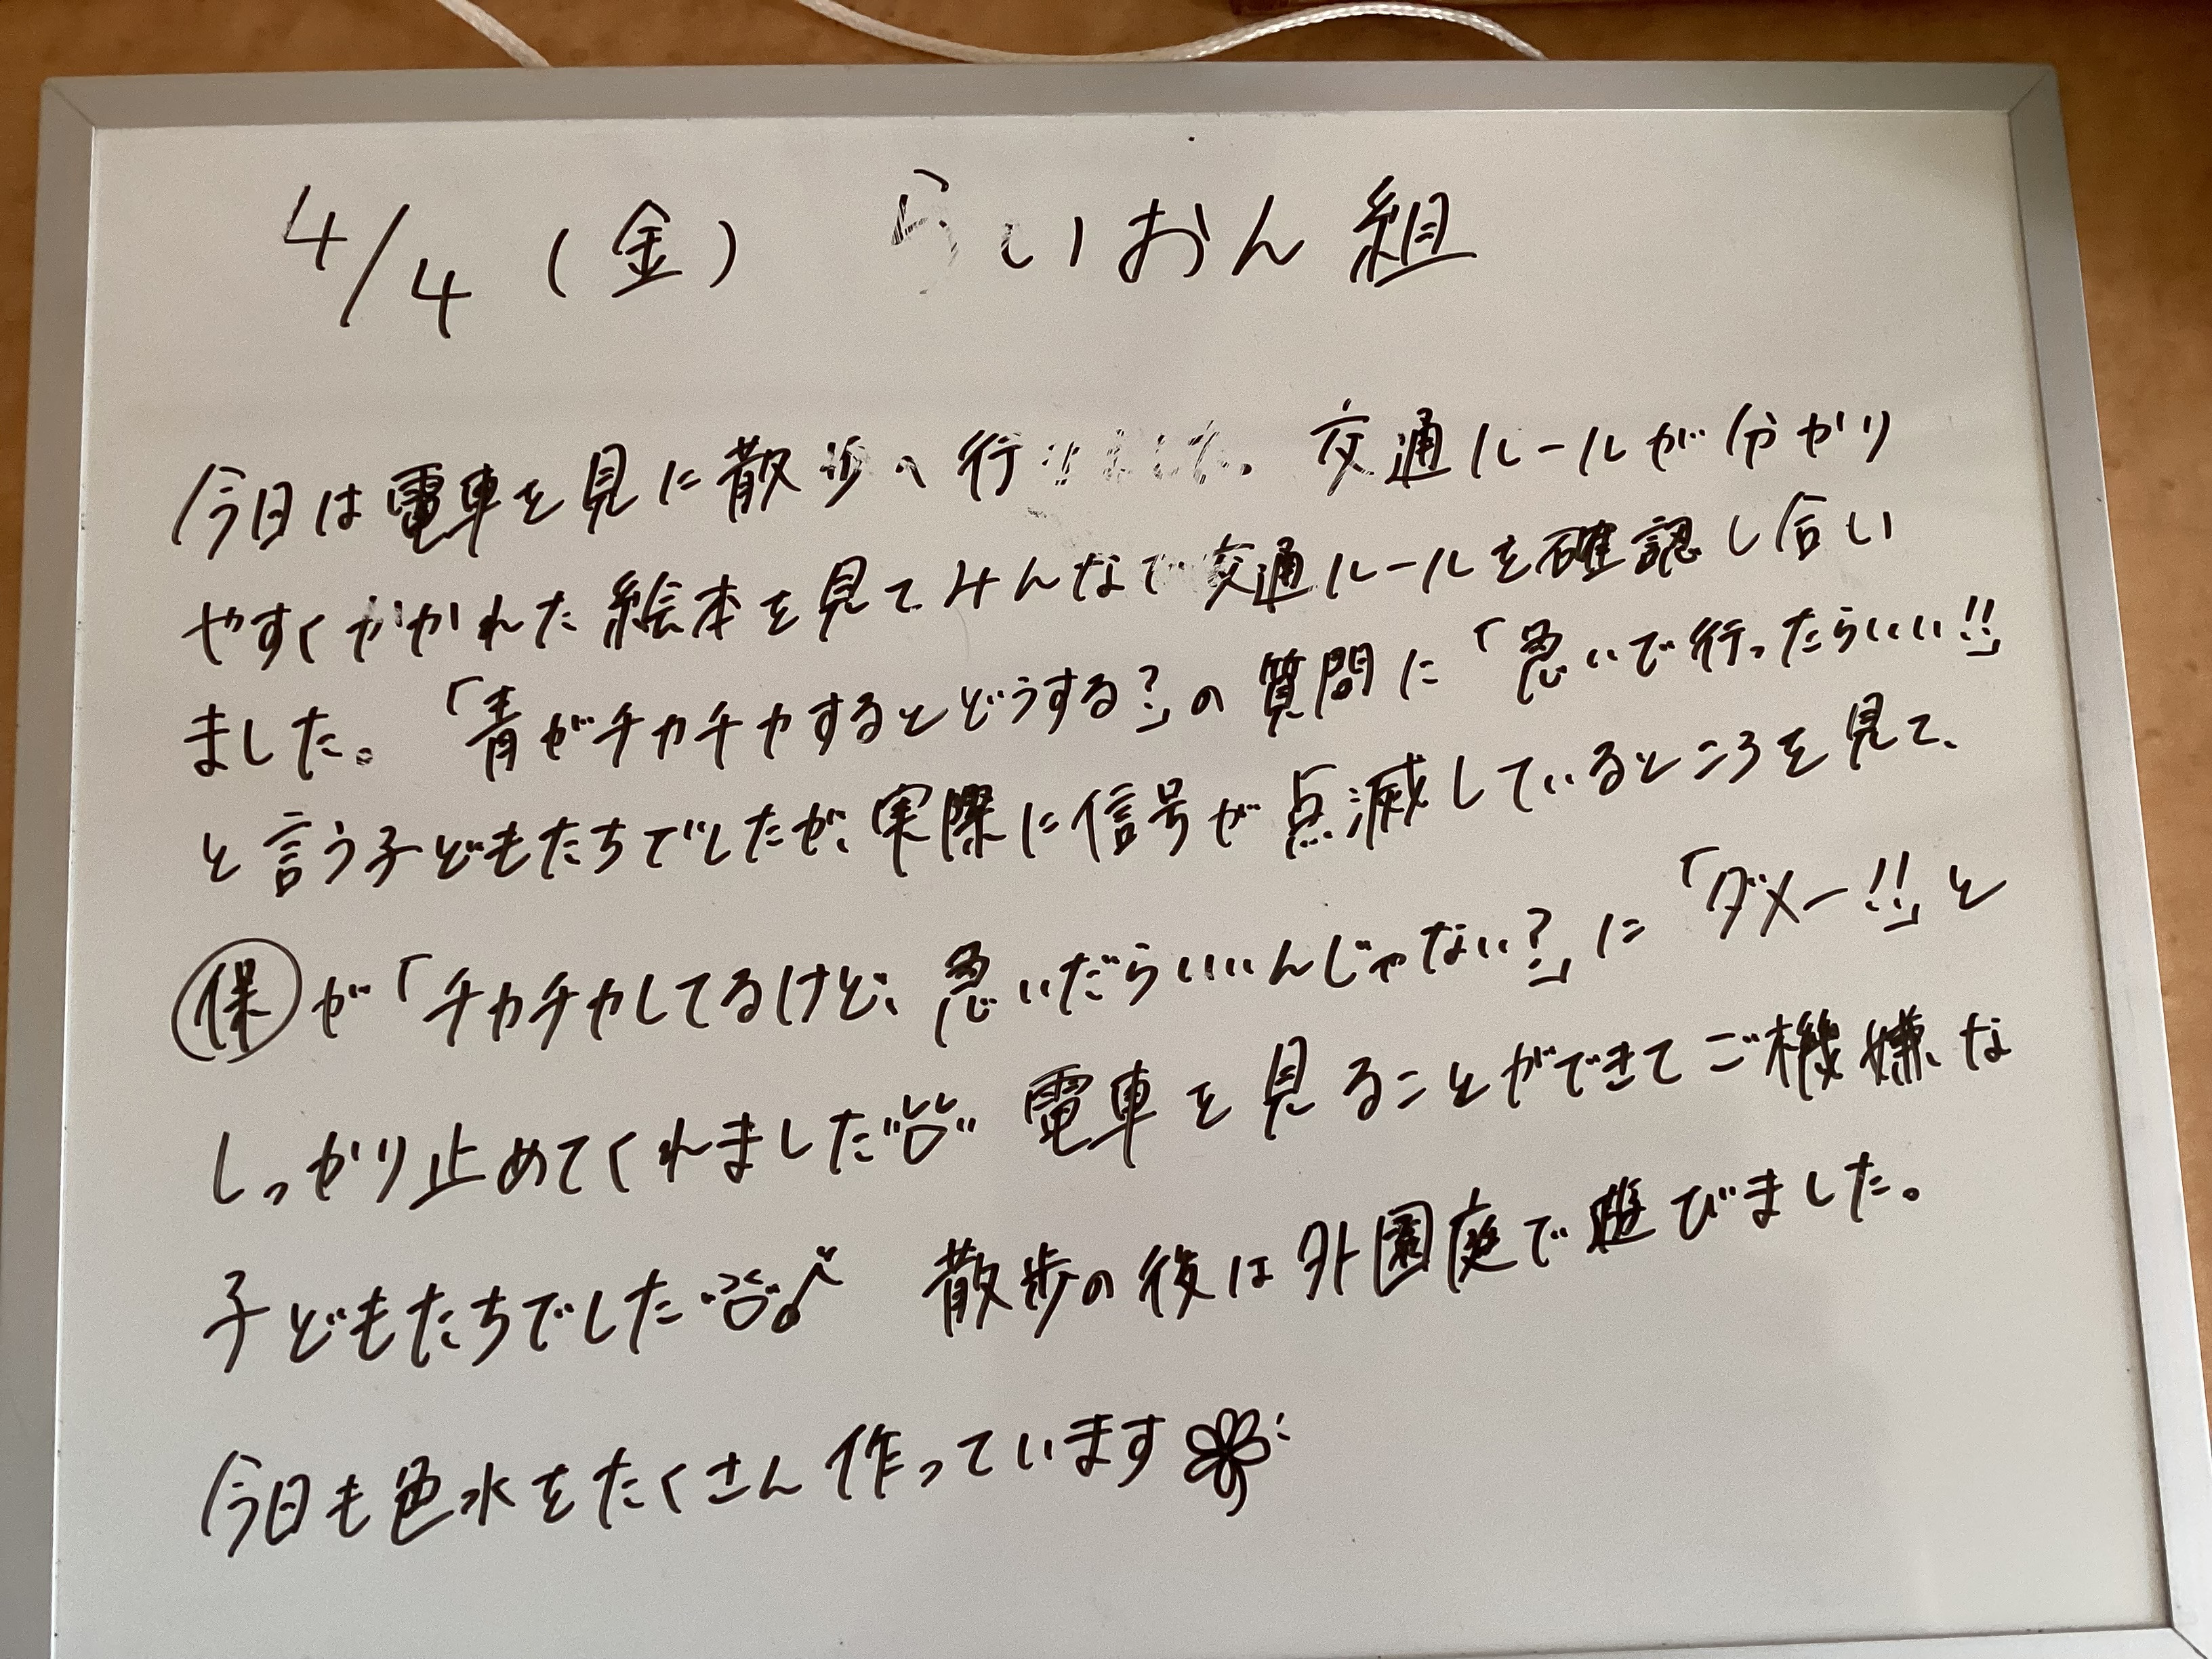 4/4（金）　らいおん組
今日は電車を見に散歩へ行きました。交通ルールが分かり
やすくかかれた絵本を見てみんなで交通ルールを確認し合い
ました。「青がチカチカするとどうする?」の質問に「急いで行ったらいい!!」
と言う子どもたちでしたが、実際に信号が点滅しているところを見て、
㊩が「チカチカしてるけど、急いだらいいんじゃない?」に「ダメー!!」と
しっかり止めてくれました 電車を見ることができてご機嫌な
子どもたちでした♪　散歩の後は外園庭で遊びました。
今日も色水をたくさん作っています